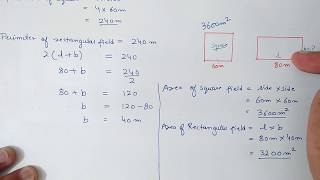 = 4 x 60m
= 240m
Perimeter of rectangular field = 240 m
2(l+b) = 240
80+b = 240/2
80+b = 120
b = 120-80
b = 40m
3600m²
60m
80m
Area of square field = side x side
= 60m x 60m
= 3600m²
Area of Rectangular field = l x b
= 80m x 40m
= 3200m²